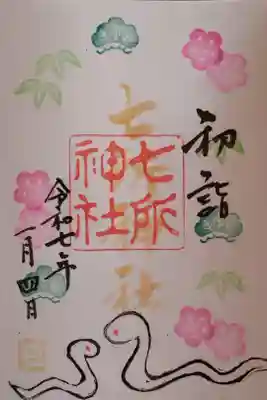 初詣
七所社
七所
神社
令和七年
一月四日